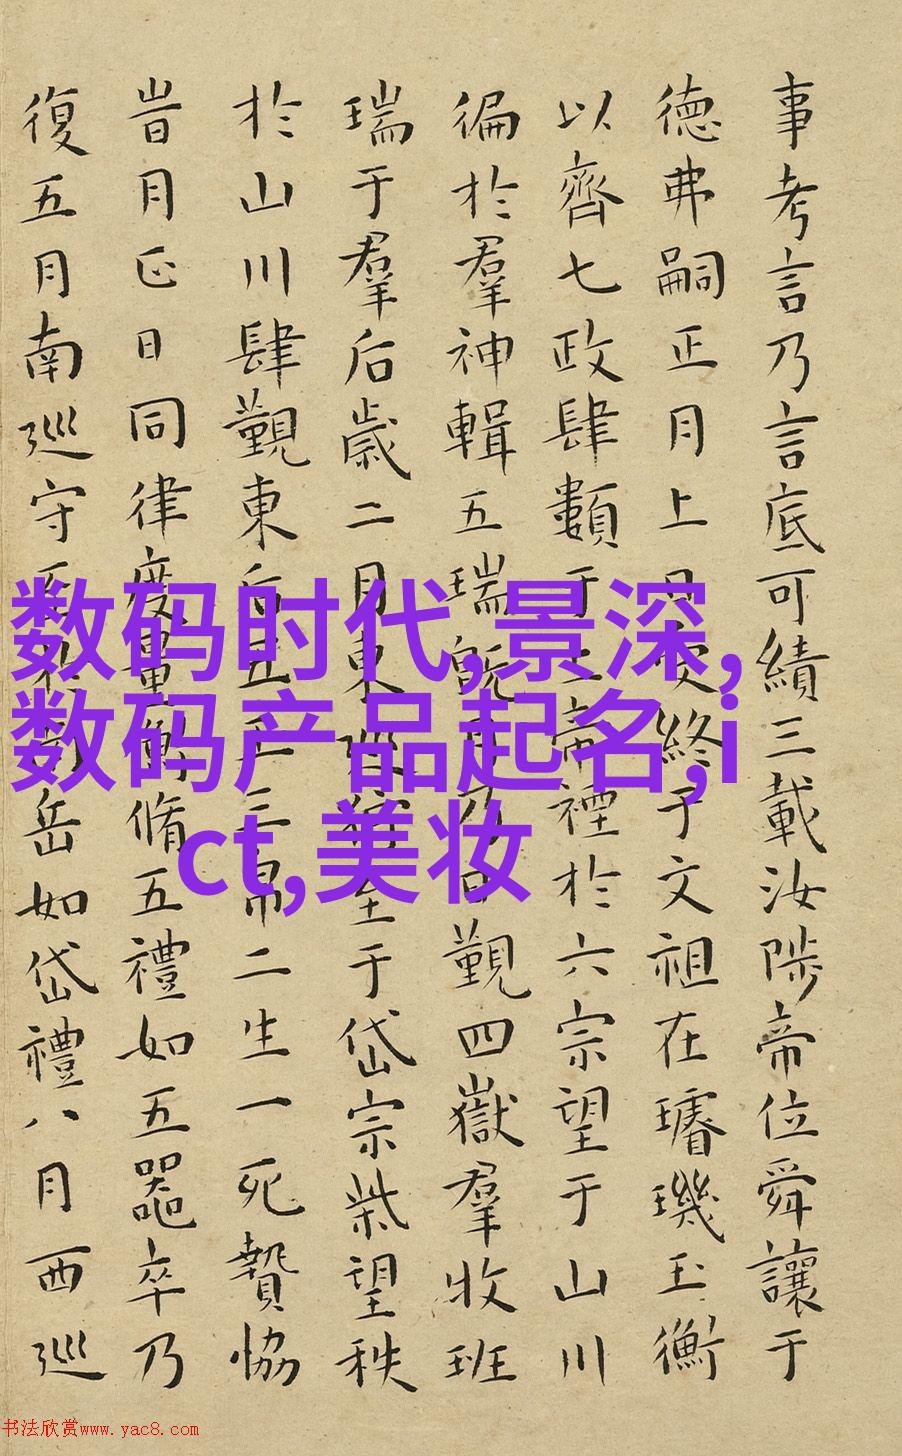 事考言乃言底可績三載汝陟帝位舜讓于
德弗嗣正月上日受終于文祖在璿璣玉衡
以齊七政肆類于上帝禋於六宗望于山川
徧於羣神輯五瑞旣月乃日覲四嶽羣牧班
瑞于羣后歲二月東巡狩至于岱宗柴望秩
於山川肆覲東后五玉三帛二生一死贄協
旹月正日同律度量衡脩五禮如五器卒乃
復五月南巡守至於南岳如岱禮八月西巡
数码时代,景深,
数码产品起名,i
ct,美妆
书法欣赏www.yac8.com